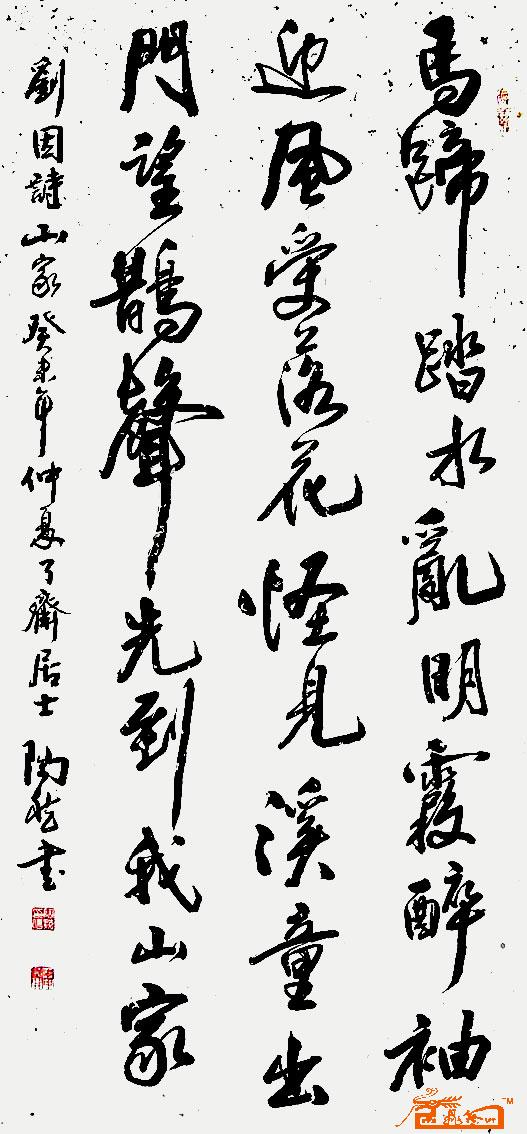 馬蹄踏水亂明霞醉袖
迎風受落花怪見溪童出
門望鵲聲先到我山家
劉因詩山家癸未年仲夏了齋居士陶書